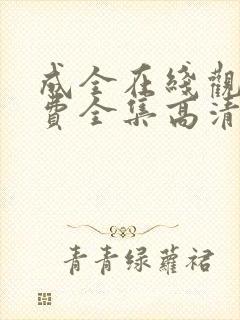 成全在綫觀
費全集高清
青青绿蘿裙